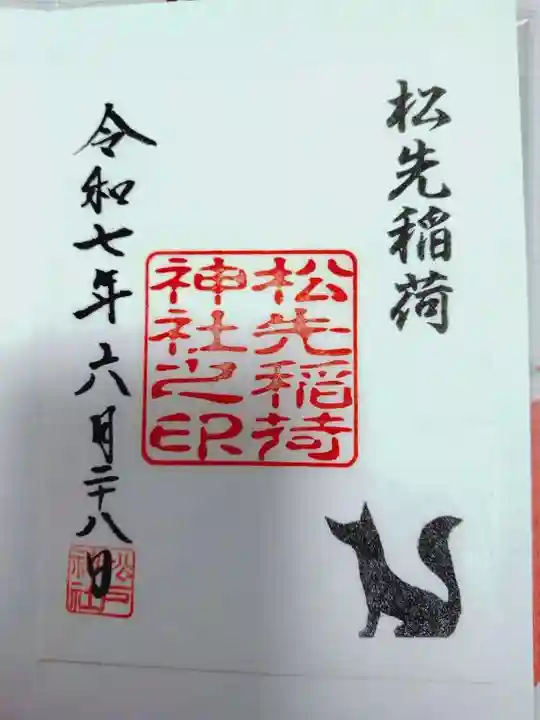 松先稲荷
松先稲荷
神社之印
令和七年六月二十八日
松戸
神社